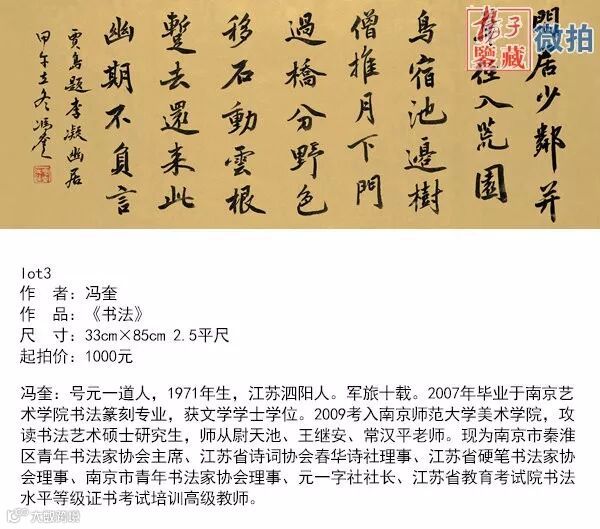 閒居少鄰并
徑入荒園
鳥宿池邊樹
僧推月下門
過橋分野色
移石動雲根
暫去還來此
幽期不負言
賈島題李凝幽居
甲午立冬馮奎
揚子
鑒藏
微拍
lot3
作 者：冯奎
作 品：《书法》
尺 寸：33cm×85cm 2.5平尺
起拍价：1000元
冯奎：号元一道人，1971年生，江苏泗阳人。军旅十载。2007年毕业于南京艺
术学院书法篆刻专业，获文学学士学位。2009考入南京师范大学美术学院，攻
读书法艺术硕士研究生，师从尉天池、王继安、常汉平老师。现为南京市秦淮
区青年书法家协会主席、江苏省诗词协会春华诗社理事、江苏省硬笔书法家协
会理事、南京市青年书法家协会理事、元一字社社长、江苏省教育考试院书法
水平等级证书考试培训高级教师。
大数跨境